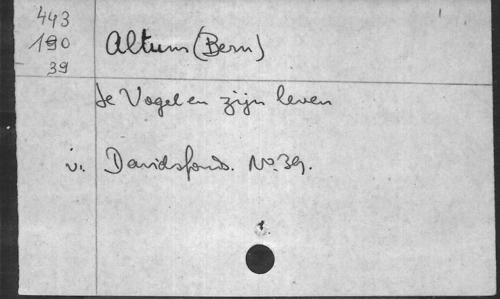 443
190
39
Altum (Bern)
de Vogel en zijn leven
v. Davidsfonds. No. 39.